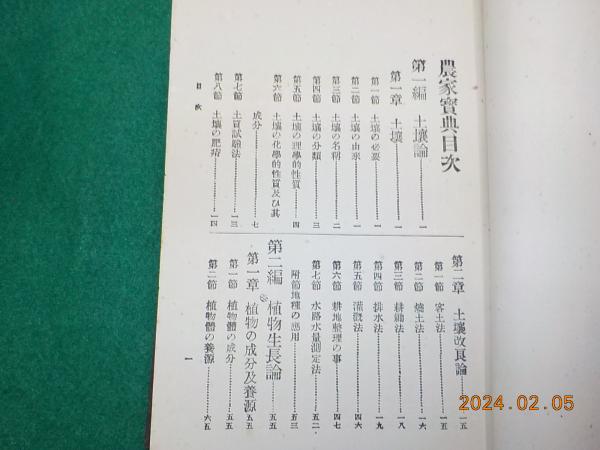 農家寶典目次
第一編 土壤論……一
第一章 土壤……一
第一節 土壤の必要……一
第二節 土壤の由來……一
第三節 土壤の名稱……二
第四節 土壤の分類……三
第五節 土壤の理學的性質……四
第六節 土壤の化學的性質及び其
成分……七
第七節 土質試驗法……一三
第八節 土壤の肥瘠……一四
第二章 土壤改良論……一五
第一節 客土法……一五
第二節 燒土法……一六
第三節 耕鋤法……一八
第四節 排水法……一九
第五節 灌漑法……四六
第六節 耕地整理の事……四七
第七節 水路水量測定法……五二
附節地種の應用……五三
第二編 植物生長論……五五
第一章 植物の成分及養源……五五
第一節 植物體の成分……五五
第二節 植物體の養源……六五
目次
一
2024.02.05